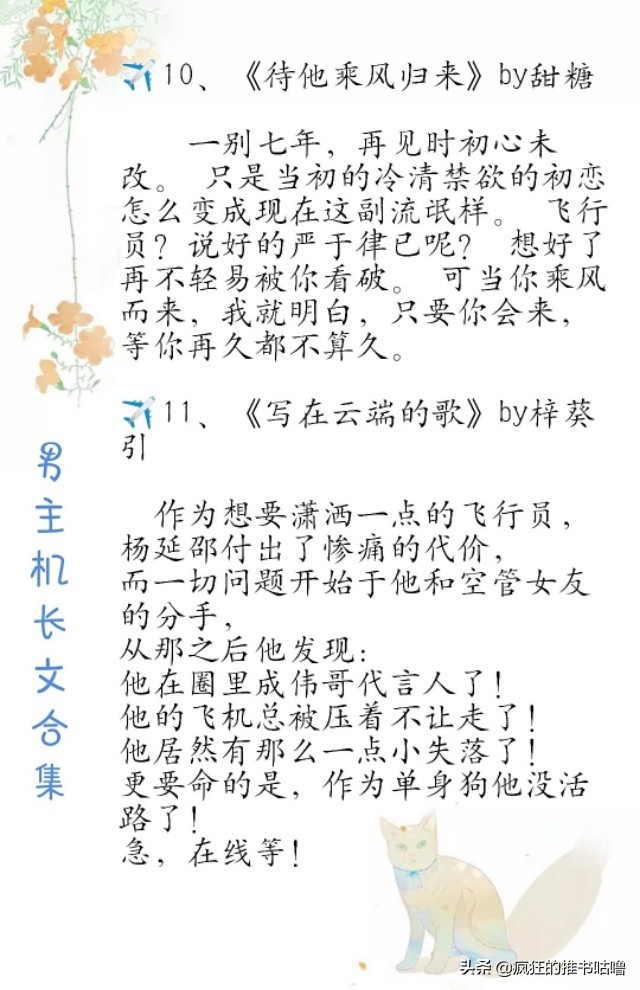 ✈️10、《待他乘风归来》by甜糖
一别七年，再见时初心未
改。 只是当初的冷清禁欲的初恋
怎么变成现在这副流氓样。 飞行
员？说好的严于律己呢？ 想好了
再不轻易被你看破。 可当你乘风
而来，我就明白，只要你会来，
等你再久都不算久。
✈️11、《写在云端的歌》by梓葵
引
作为想要潇洒一点的飞行员，
杨延邵付出了惨痛的代价，
而一切问题开始于他和空管女友
的分手，
从那之后他发现：
他在圈里成伟哥代言人了！
他的飞机总被压着不让走了！
他居然有那么一点小失落了！
更要命的是，作为单身狗他没活
路了！
急，在线等！
男主机长文合集
头条 @疯狂的推书咕噜